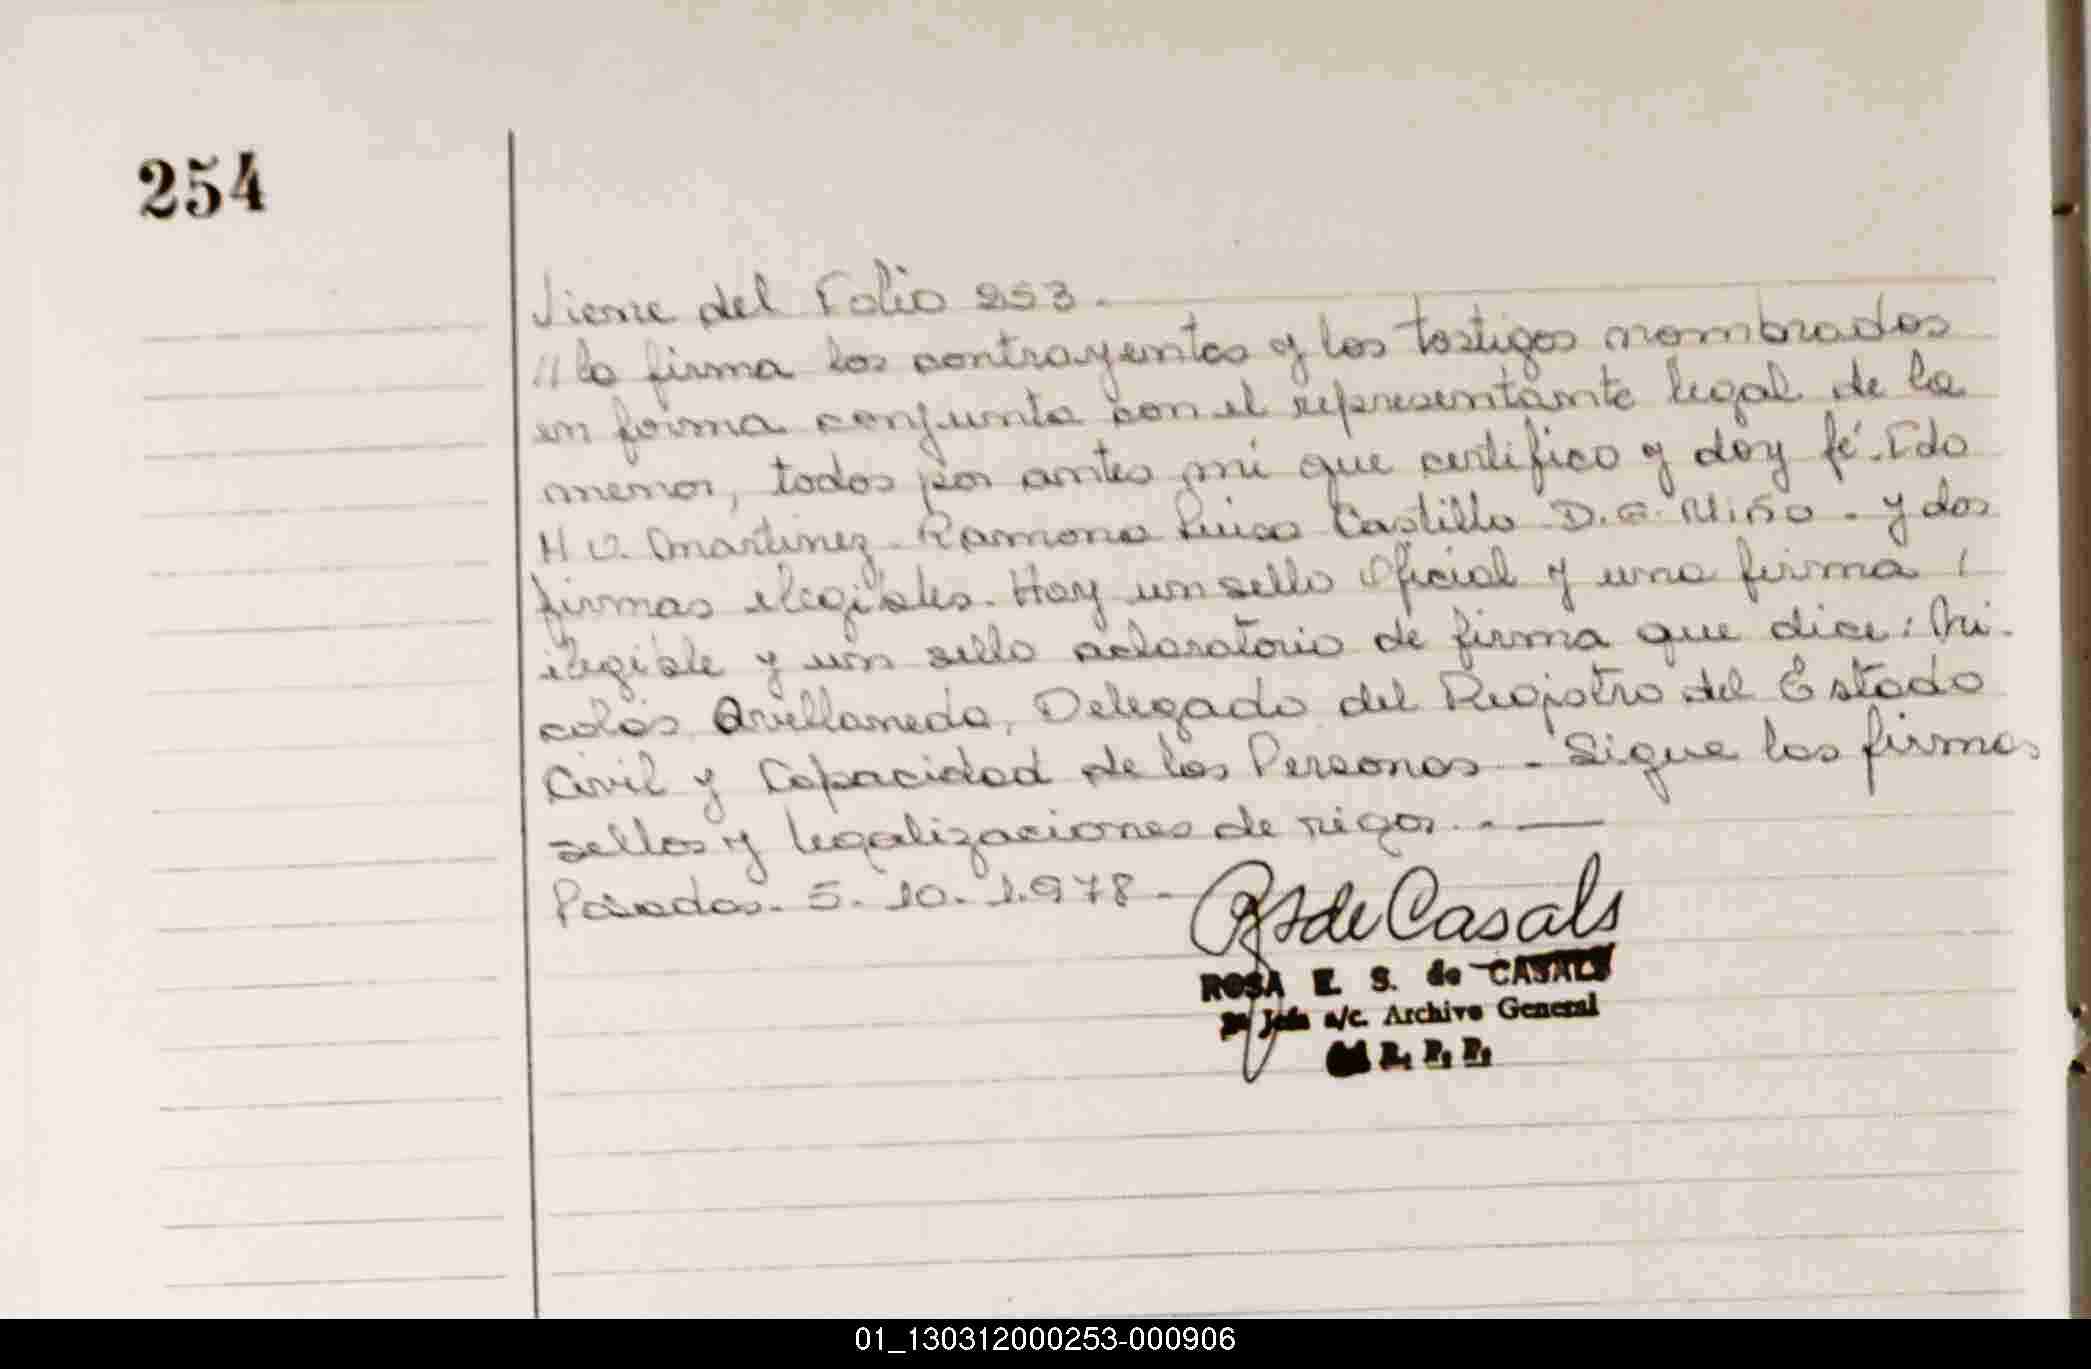 254
Viene del Folio 253.
// la firma los contrayentes y los testigos nombrados
en forma conjunta con el representante legal de la
menor, todos por antes mi que certifico y doy fé. Fdo
H V. Martinez - Ramona Luisa Castillo D. G. Niño - y dos
firmas elegibles. Hay un sello Oficial y una firma i
elegible y un sello aclaratorio de firma que dice: Ni-
colás Avellaneda, Delegado del Registro del Estado
Civil y Capacidad de las Personas - Sigue las firmas
sellos y legalizaciones de rigor. - —
Posadas. 5. 10. 1.978 -
de Casals
ROSA E. S. de CASALS
Jefa a/c. Archivo General
R. P. P.
01_130312000253-000906